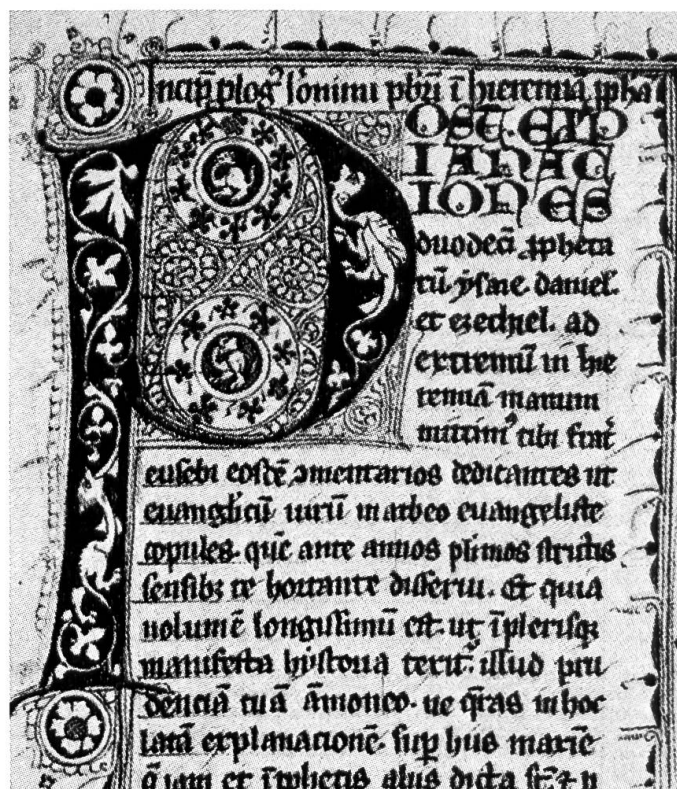 Incip̅ plog᷒ s̄onimi pbr̄i ī hieremiā, ꝓpha᷒
OST. EXP
LANAC
IONES
duodeci̅ ꝓpheta
rū. ysaie. daniel.
et ezechiel. ad
extremū in hie
remiā manum
mittim᷒ tibi frat᷒
eusebi eosdē ꝯmentarios dedicantes ut
euangl̄icū uirū matheo euangeliste
copules. quē ante annos plimos
sensibꝫ te hortante disserui. Et quia
uolumē longissimū est. ut īplerisqꝫ
manifesta hystoria texit᷒. illud pru
denciā tuā āmoneo. ne q̄ras in hoc
latā explanacionē. sup hiis maxīe
q̄ iam et īꝓphetis aliis dicta st̄